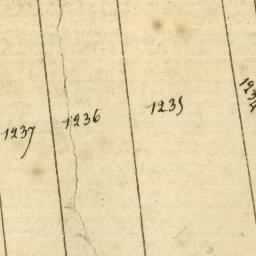 1237
1236
1235
1234